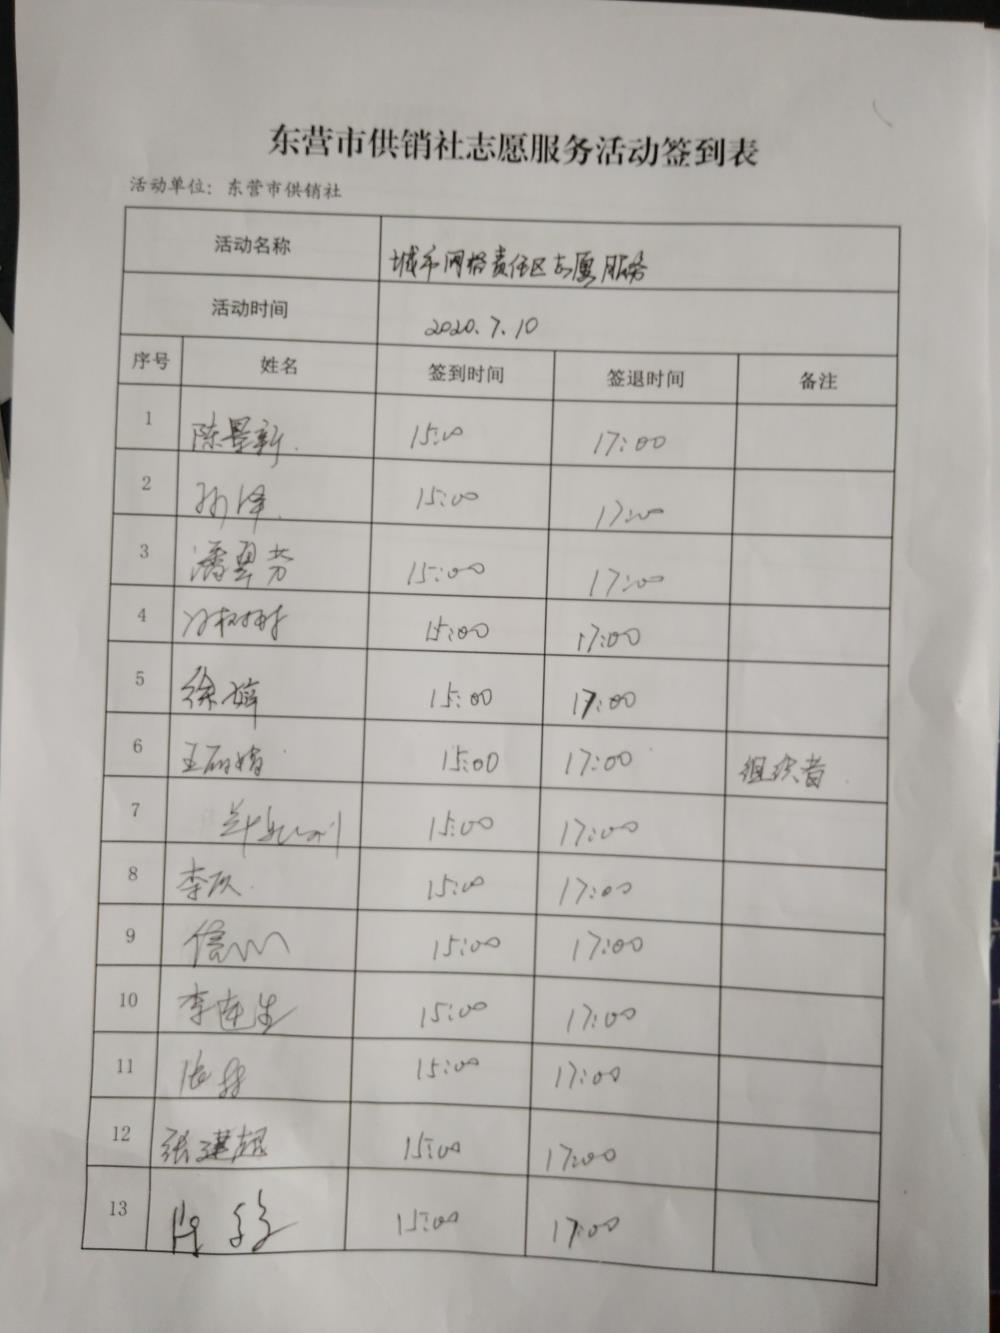 东营市供销社志愿服务活动签到表
活动单位：东营市供销社
活动名称 城市网格责任区志愿服务
活动时间 2020.7.10
序号 姓名 签到时间 签退时间 备注
1 陈景新 15:00 17:00
2 孙泽 15:00 17:00
3 潘翠芳 15:00 17:00
4 15:00 17:00
5 徐婷 15:00 17:00
6 王丽娟 15:00 17:00 组织者
7 15:00 17:00
8 李欣 15:00 17:00
9 15:00 17:00
10 李连生 15:00 17:00
11 15:00 17:00
12 张建超 15:00 17:00
13 15:00 17:00